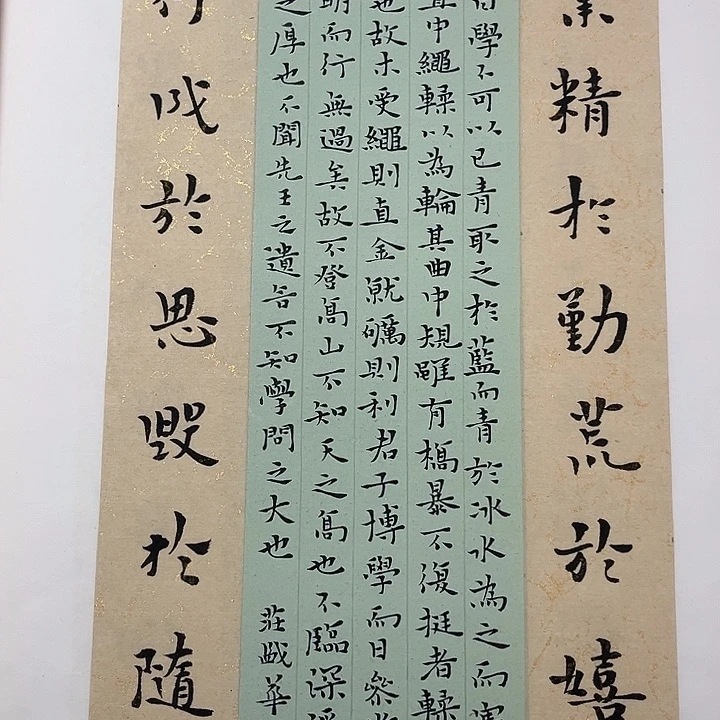 業精於勤荒於嬉
曰學不可以已青取之於藍而青於冰水為之而寒
直中繩輮以為輪其曲中規雖有槁暴不復挺者輮
也故木受繩則直金就礪則利君子博學而日參
明而行無過矣故不登高山不知天之高也不臨深谿
之厚也不聞先王之遺言不知學問之大也 莊戲華
行成於思毀於隨